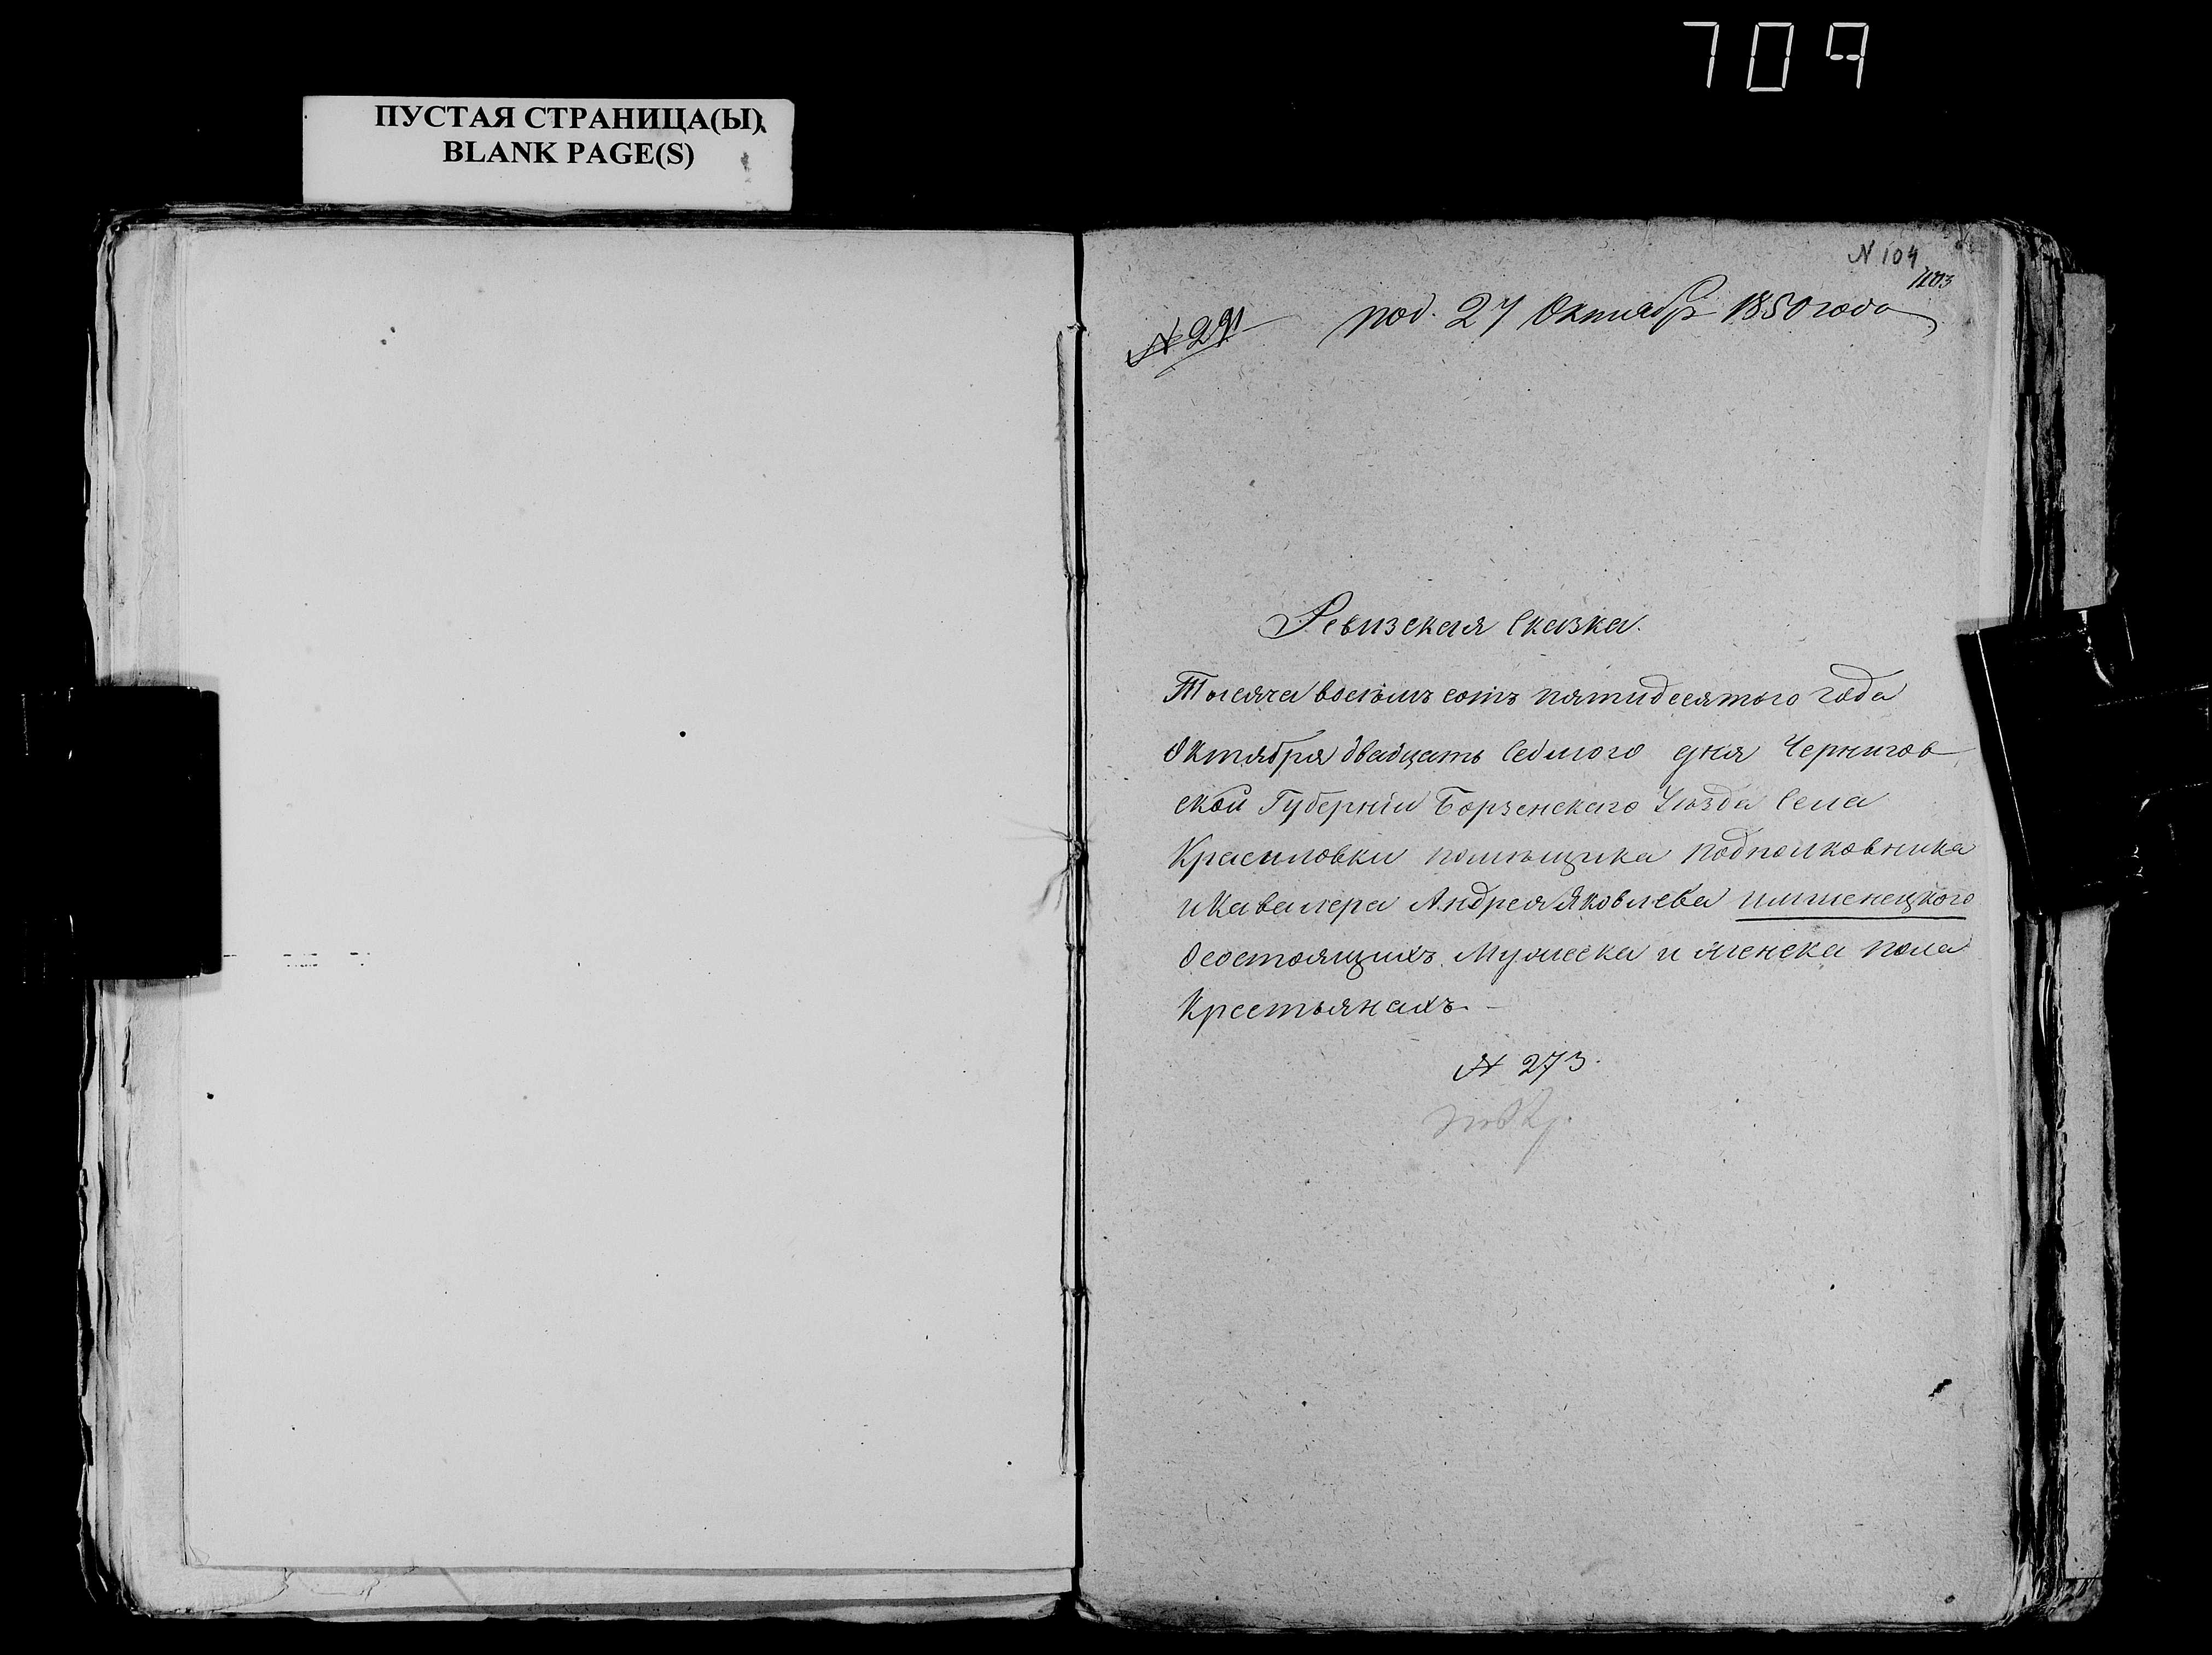 709
ПУСТАЯ СТРАНИЦА(Ы)
BLANK PAGE(S)
N 104
1103
№ 291 под. 27 Октября 1850 года
Ревизская Сказка.
Тысяча восемъ сотъ пятидесятого года
Октября двадцать Седмого дня Чернигов
ской Губерніи Борзенскаго Уѣзда Села
Красиловки помѣщика подполковника
и Кавалера Андрея Яковлева
О состоящихъ Мужеска и женска пола
Крестьянахъ. —
№ 273.